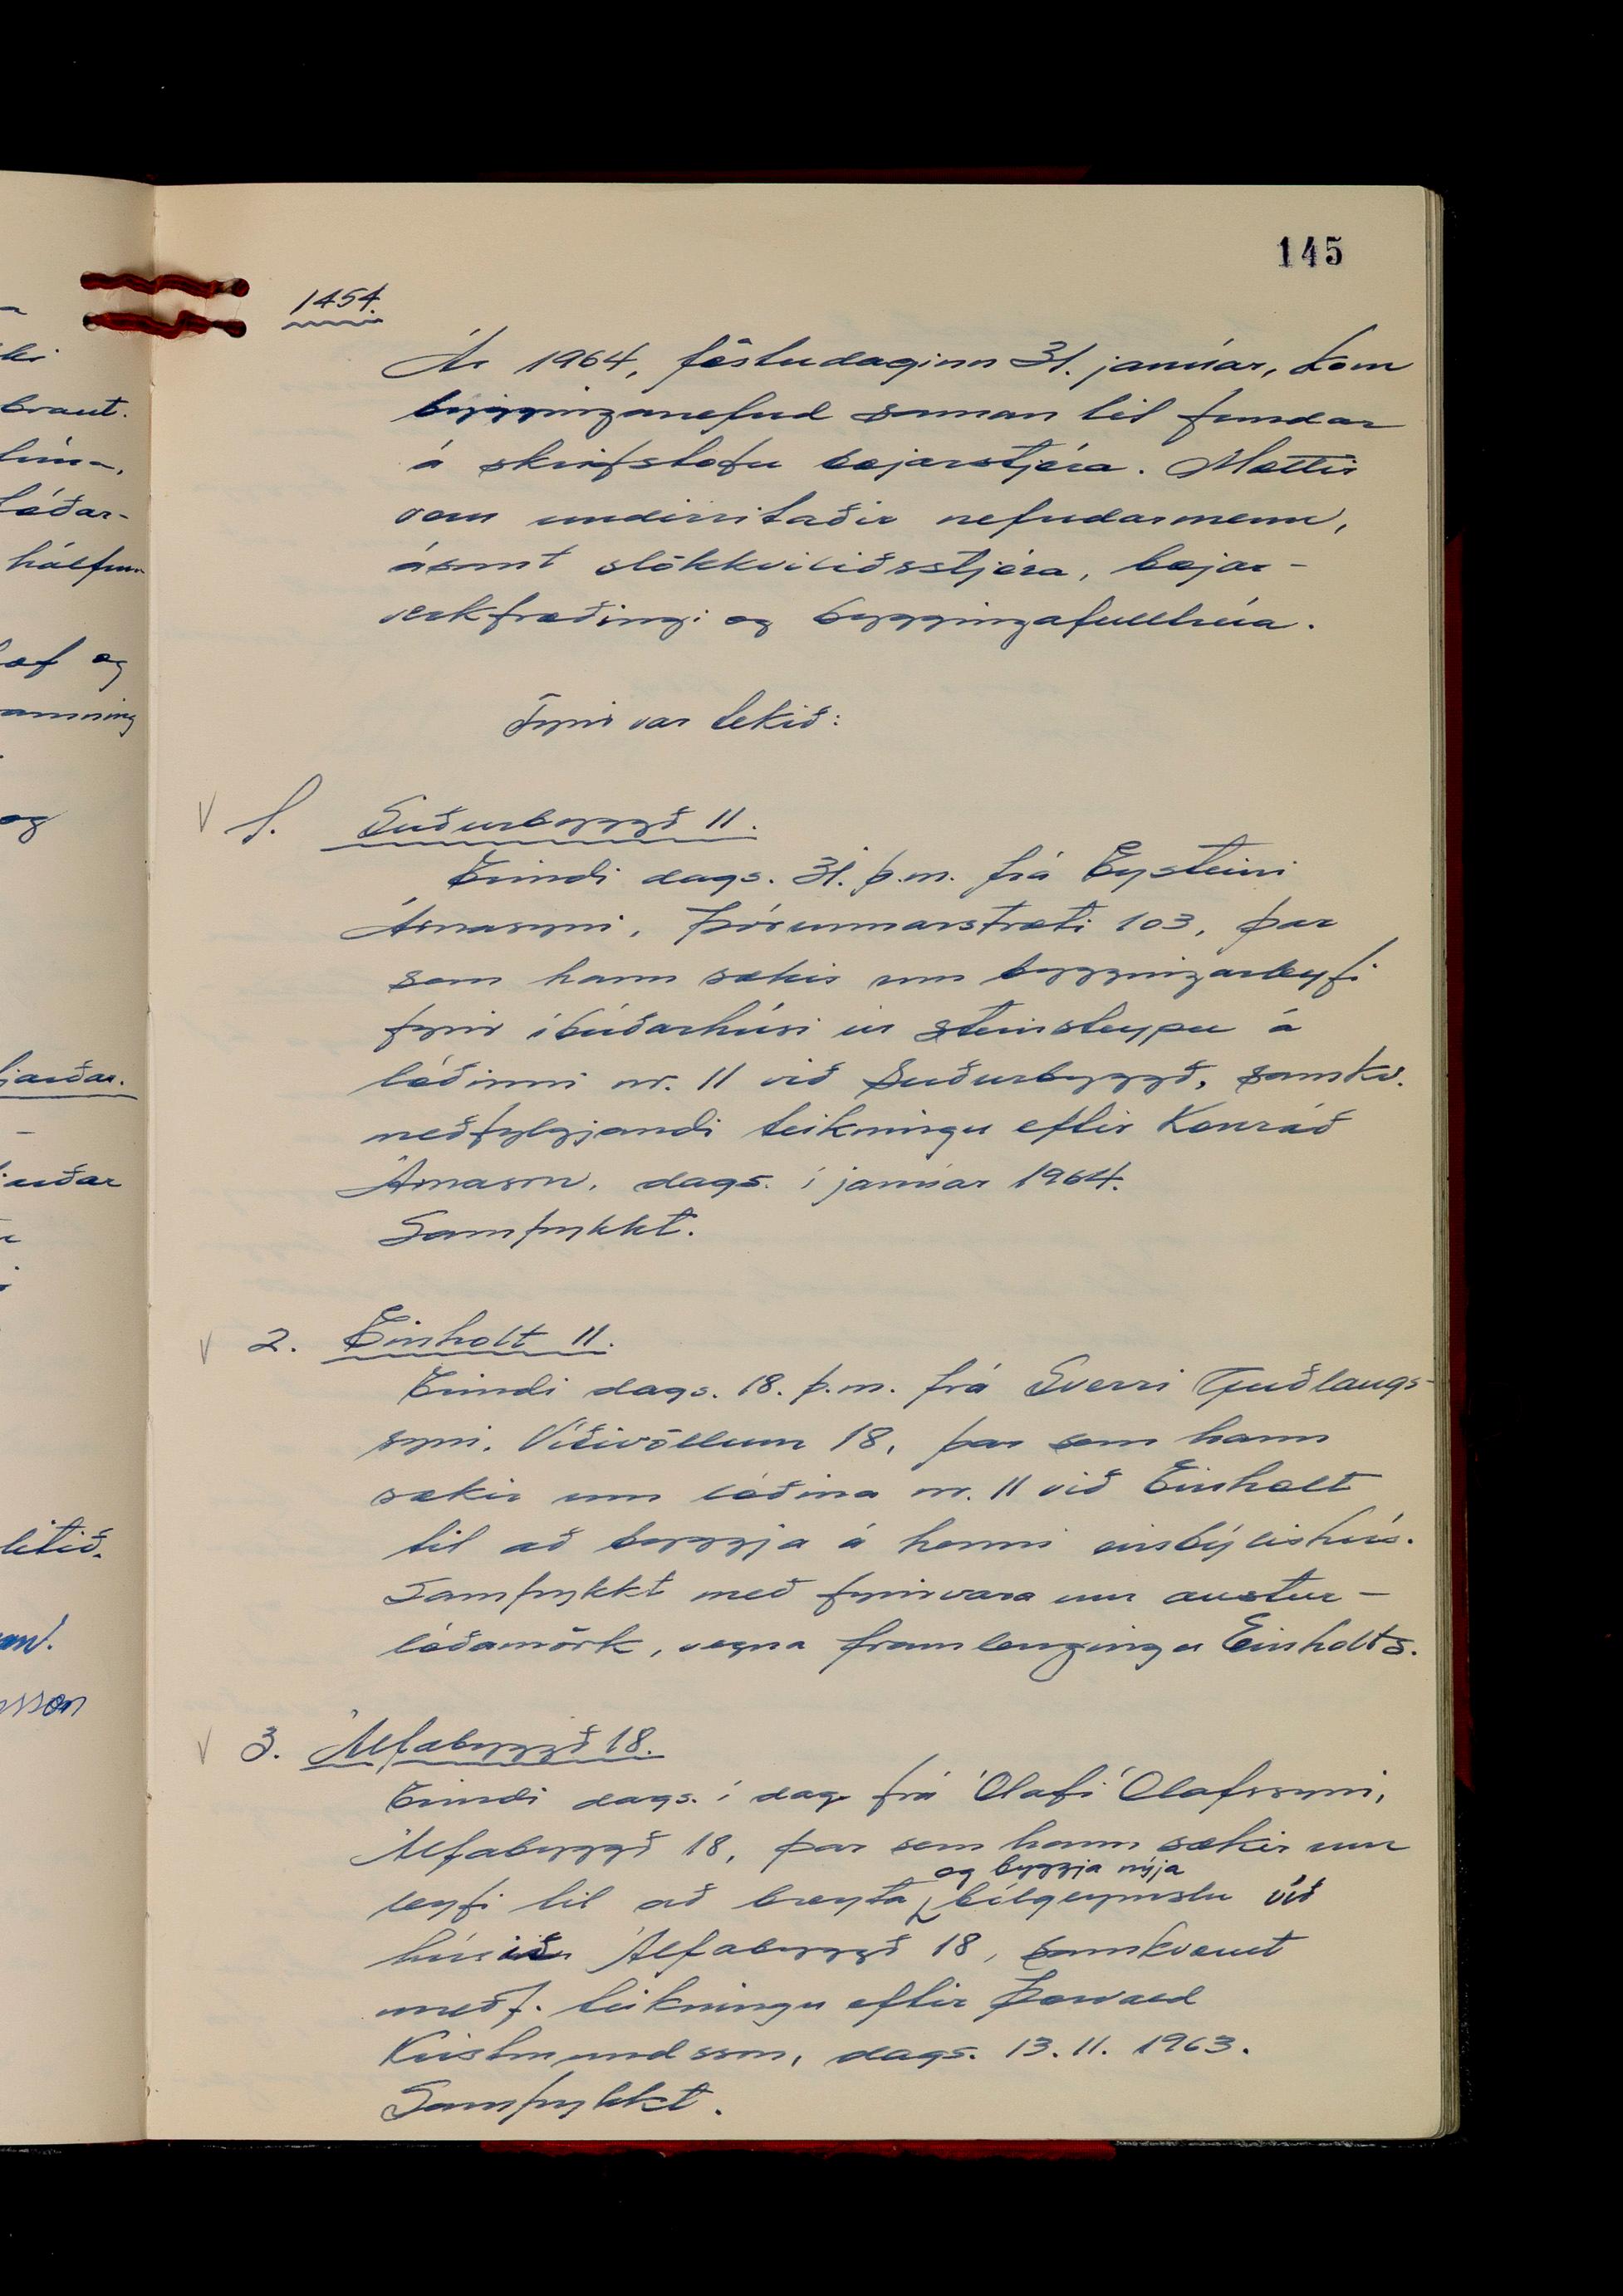 145
1454.
Ár 1964, föstudaginn 31. janúar, kom
bygginganefnd saman til fundar
á skrifstofu bæjarstjóra. Mættir
voru undirritaðir nefndarmenn,
ásamt slökkviliðsstjóra, bæjar-
verkfræðingi og byggingafulltrúa.
Fyrir var tekið:
V 1. Suðurbyggð 11.
Erindi dags. 31. þ.m. frá Eysteini
Árnasyni, Þórunnarstræti 103, þar
sem hann sækir um byggingarleyfi
fyrir íbúðarhúsi úr steinsteypu á
lóðinni nr. 11 við Suðurbyggð, samkv.
meðfylgjandi teikningu eftir Konráð
Árnason, dags. í janúar 1964.
Samþykkt.
V 2. Einholt 11.
Erindi dags. 18. þ.m. frá Sverri Guðlaugs-
syni, Víðivöllum 18, þar sem hann
sækir um lóðina nr. 11 við Einholt
til að byggja á henni einbýlishús.
Samþykkt með fyrirvara um austur-
lóðamörk, vegna framlengingu Einholts.
V 3. Álfabyggð 18.
Erindi dags. í dag frá Ólafi Ólafssyni,
Álfabyggð 18, þar sem hann sækir um
og byggja nýja
leyfi til að breyta bílgeymslu við
húsið Álfabyggð 18, samkvæmt
meðf. teikningu eftir Þorvald
Kristmundsson, dags. 13.11. 1963.
Samþykkt.
braut.
lóðar-
hálfum
og
og
jarðar.